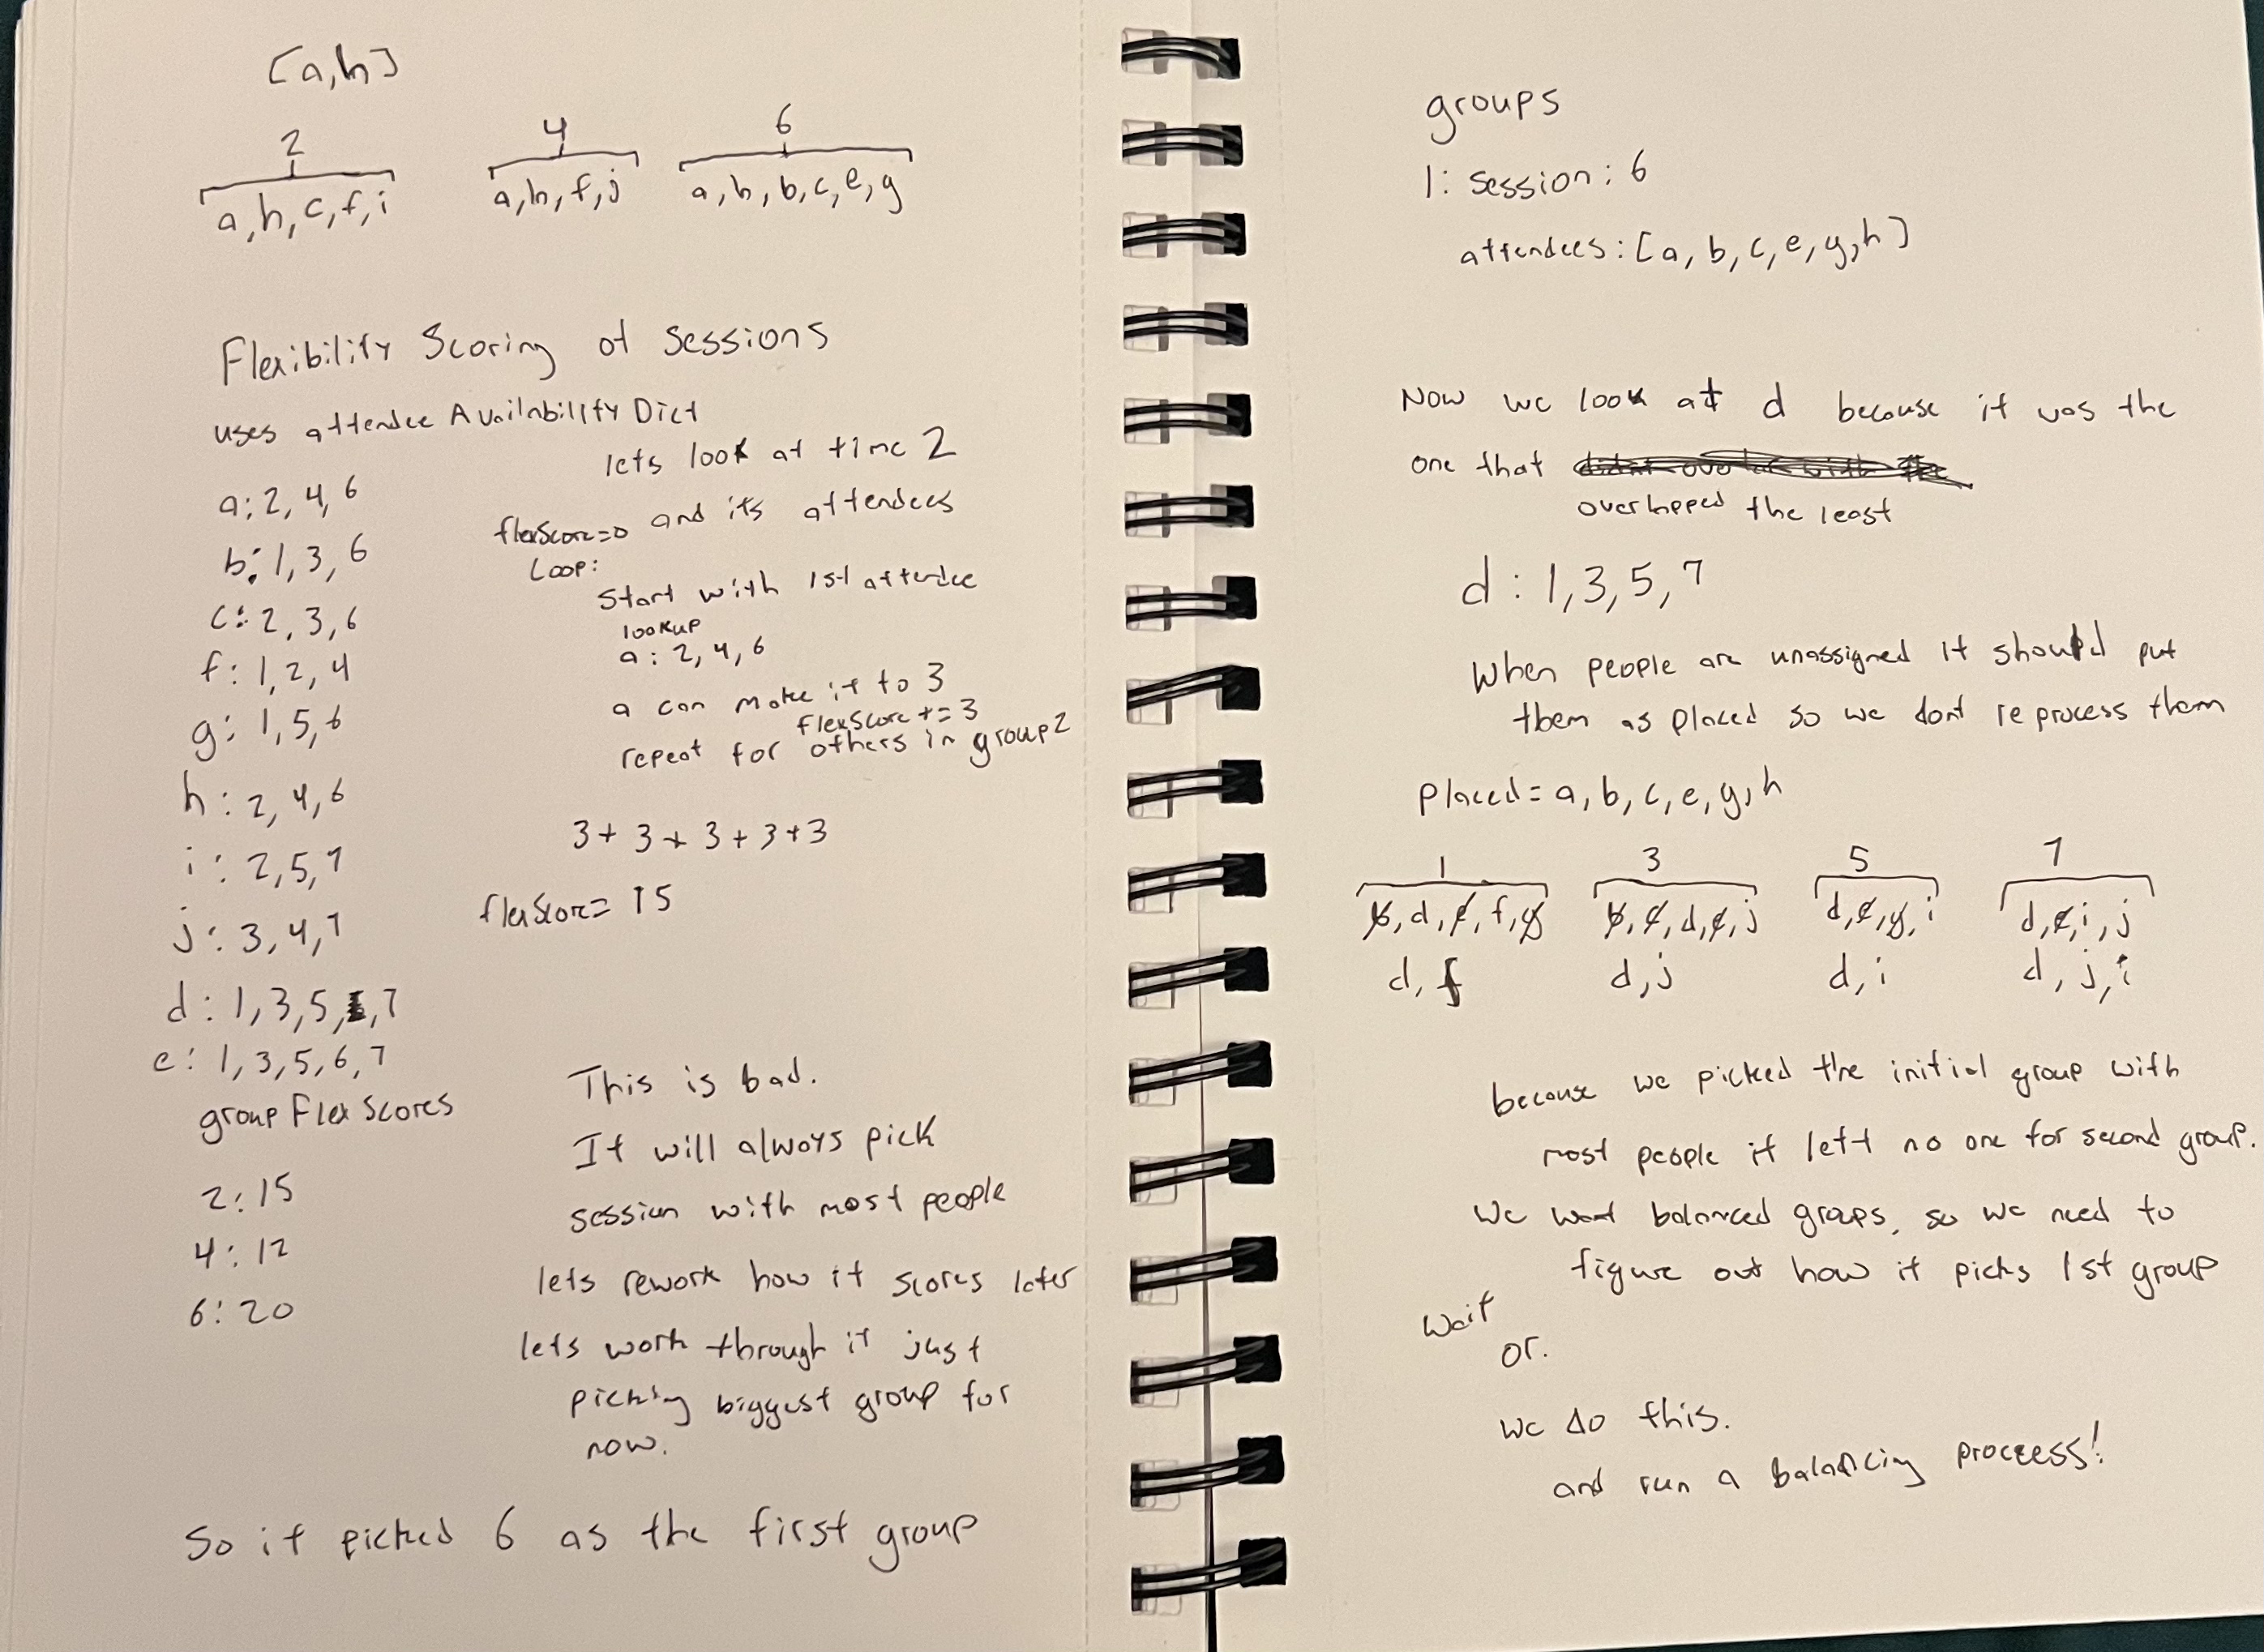 [a,h]
2 4 6
a,h,c,f,i a,h,f,j a,h,b,c,e,g
Flexibility Scoring of Sessions
uses attendee Availability Dict
a: 2, 4, 6
b: 1, 3, 6
c: 2, 3, 6
f: 1, 2, 4
g: 1, 5, 6
h: 2, 4, 6
i: 2, 5, 7
j: 3, 4, 7
d: 1, 3, 5, 7
e: 1, 3, 5, 6, 7
group Flex Scores
2: 15
4: 12
6: 20
lets look at time 2
and its attendees
flexScore=0
Loop:
Start with 1st attendee
lookup
a: 2, 4, 6
a can make it to 3
flexScore += 3
repeat for others in group 2
3 + 3 + 3 + 3 + 3
flexScore = 15
This is bad.
It will always pick
session with most people
lets rework how it scores later
lets work through it just
picking biggest group for
now.
So it picked 6 as the first group
groups
1: session: 6
attendees: [a, b, c, e, g, h]
Now we look at d because it was the
one that didnt overlap with the
overlapped the least
d: 1, 3, 5, 7
When people are unassigned it should put
them as placed so we dont reprocess them
Placed = a, b, c, e, g, h
1 3 5 7
b, d, e, f, g b, c, d, e, j d, e, g, i d, e, i, j
d, f d, j d, i d, j, i
because we picked the initial group with
most people it left no one for second group.
We want balanced groups, so we need to
figure out how it picks 1st group
Wait
or.
we do this.
and run a balancing proccess!